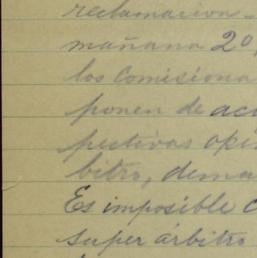 reclamacion_
mañana 20,
los comisiona
ponen de acu
pectivas opin
bitro, dema
Es imposible c
super árbitro